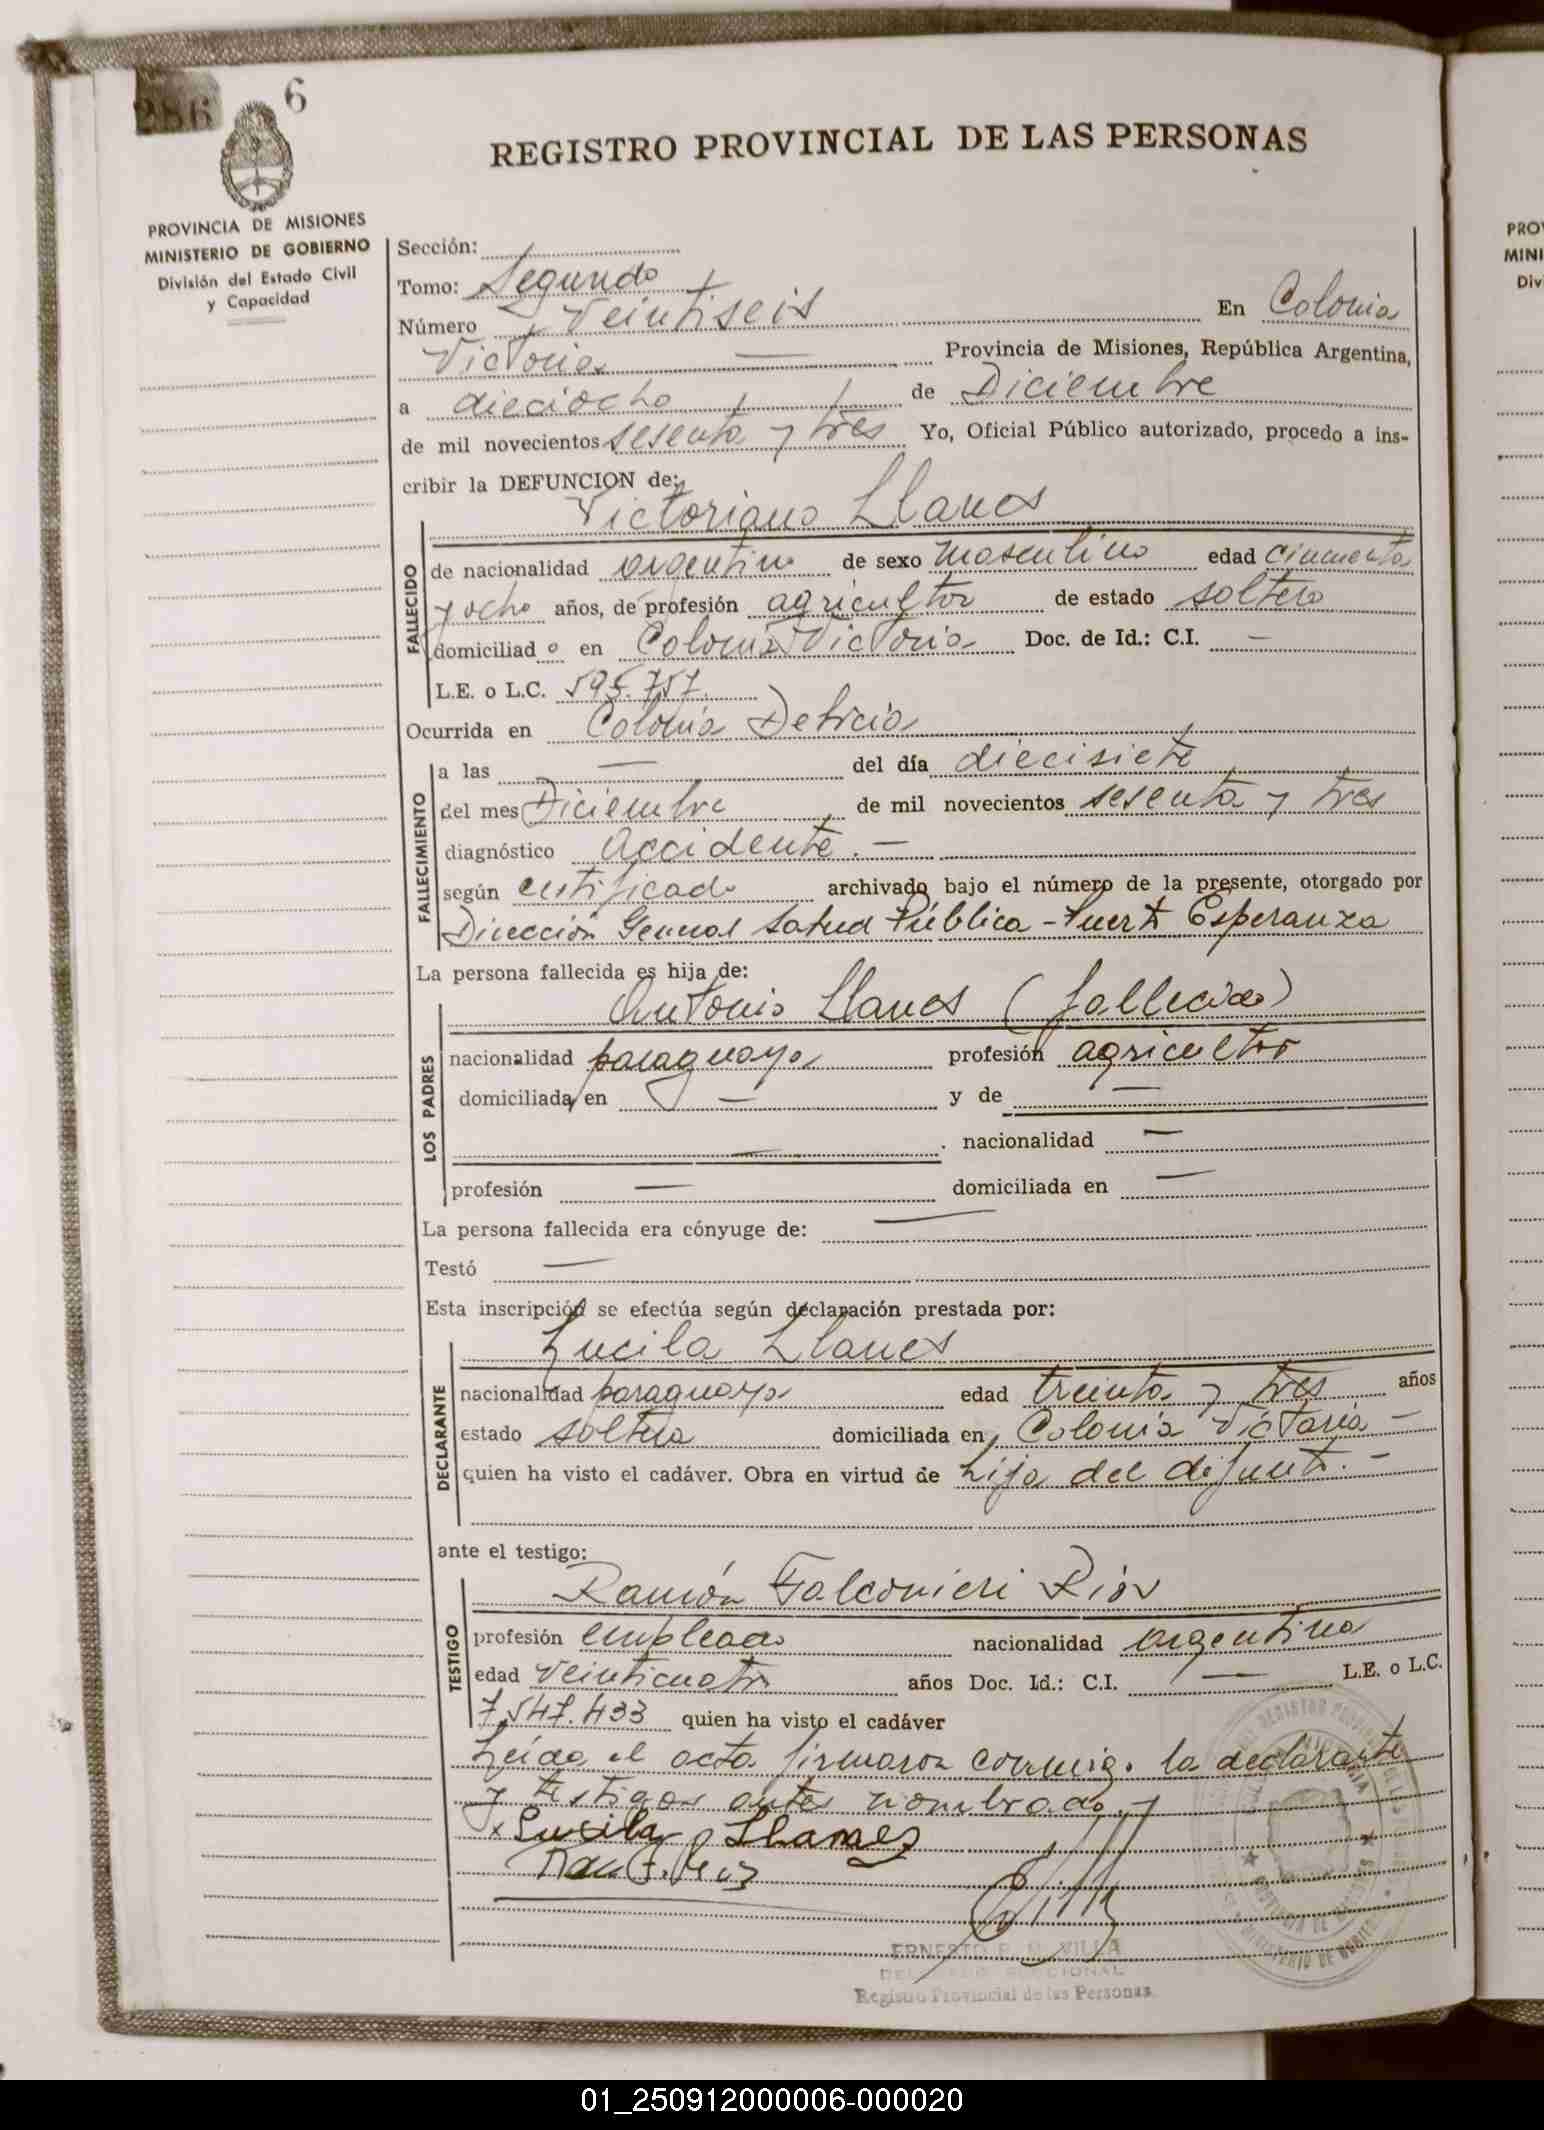 286
6
PROVINCIA DE MISIONES
MINISTERIO DE GOBIERNO
División del Estado Civil
y Capacidad
REGISTRO PROVINCIAL DE LAS PERSONAS
Sección:
Tomo: Segundo
Número Veintiseis En Colonia
Victoria — Provincia de Misiones, República Argentina,
a dieciocho de Diciembre
de mil novecientos sesenta y tres Yo, Oficial Público autorizado, procedo a ins-
cribir la DEFUNCION de:
Victoriano Llanes
FALLECIDO
de nacionalidad argentino de sexo masculino edad cincuenta
y ocho años, de profesión agricultor de estado soltero
domiciliado en Colonia Victoria Doc. de Id.: C.I. —
L.E. o L.C. 595.757.
Ocurrida en Colonia Delicia
FALLECIMIENTO
a las — del día diecisiete
del mes Diciembre de mil novecientos sesenta y tres
diagnóstico accidente. —
según certificado archivado bajo el número de la presente, otorgado por
Dirección General Salud Pública - Puerto Esperanza
La persona fallecida es hija de:
Antonio Llanes (fallecido)
LOS PADRES
nacionalidad paraguayo profesión agricultor
domiciliada en — y de —
— . nacionalidad —
profesión — domiciliada en —
La persona fallecida era cónyuge de: —
Testó —
Esta inscripción se efectúa según declaración prestada por:
Lucila Llanes
DECLARANTE
nacionalidad paraguaya edad treinta y tres años
estado soltera domiciliada en Colonia Victoria —
quien ha visto el cadáver. Obra en virtud de hija del difunto. —
ante el testigo:
Ramón Falconieri Rios
TESTIGO
profesión empleado nacionalidad argentina
edad veinticuatro años Doc. Id.: C.I. — L.E. o L.C.
7.547.433 quien ha visto el cadáver
Leída el acta firmaron conmigo la declarante
y testigos antes nombrado.-
x Lucila Llanes
ERNESTO R. M. VILLA
DELEGADO SECCIONAL
Registro Provincial de las Personas
01_250912000006-000020